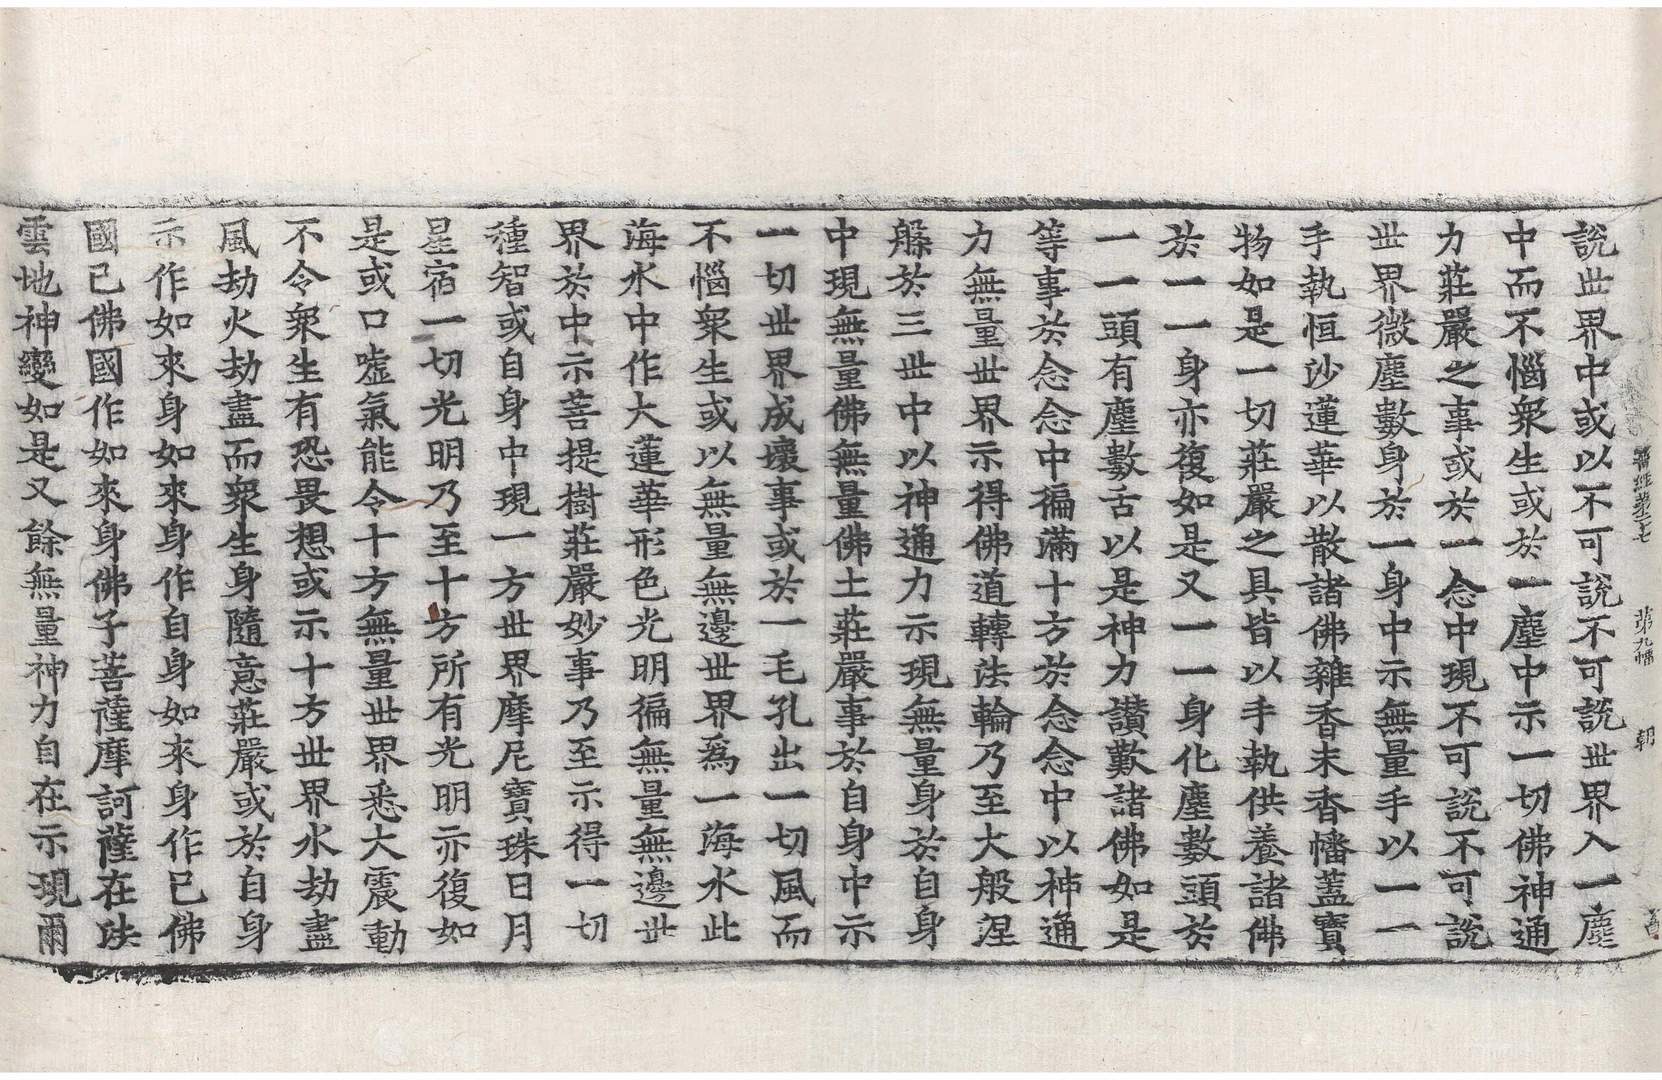 說世界中或以不可說不可說世界入一塵
中而不惱衆生或於一塵中示一切佛神通
力莊嚴之事或於一念中現不可說不可說
世界微塵數身於一身中示無量手以一一
手執恒沙蓮華以散諸佛雜香末香幡蓋寶
物如是一切莊嚴之具皆以手執供養諸佛
於一一身亦復如是又一一身化塵數頭於
一一頭有塵數舌以是神力讃歎諸佛如是
等事於念念中徧滿十方於念念中以神通
力無量世界示得佛道轉法輪乃至大般涅
槃於三世中以神通力示現無量身於自身
中現無量佛無量佛土莊嚴事於自身中示
一切世界成壞事或於一毛孔出一切風而
不惱衆生或以無量無邊世界爲一海水此
海水中作大蓮華形色光明徧無量無邊世
界於中示菩提樹莊嚴妙事乃至示得一切
種智或自身中現一方世界摩尼寶珠日月
星宿一切光明乃至十方所有光明亦復如
是或口噓氣能令十方無量世界悉大震動
不令衆生有恐畏想或示十方世界水劫盡
風劫火劫盡而衆生身隨意莊嚴或於自身
示作如來身如來身作自身如來身作己佛
國己佛國作如來身佛子菩薩摩訶薩在法
雲地神變如是又餘無量神力自在示現爾